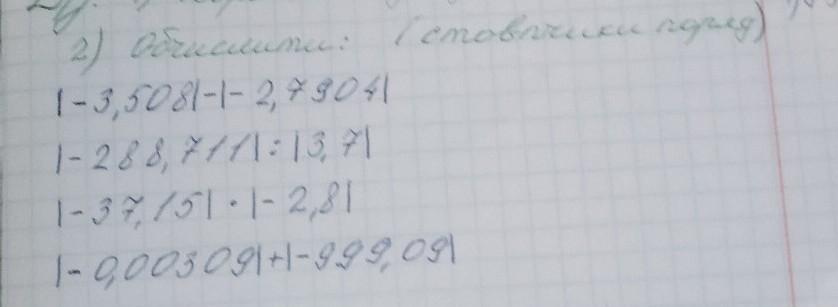 2) Обчислити: (стовпчики поряд)
|-3,508|-|-2,7904|
|-288,711|:|3,7|
|-37,15|·|-2,8|
|-0,00309|+|-999,09|